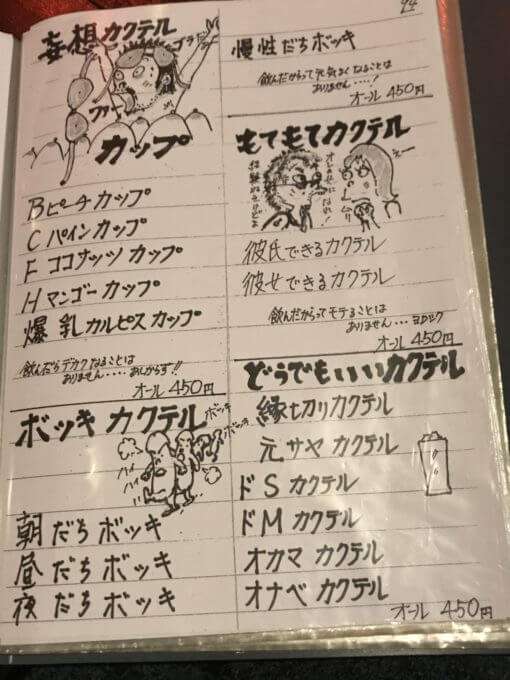 妄想カクテル
カップ
Bピーチカップ
Cパインカップ
Fココナッツカップ
Hマンゴーカップ
爆乳カルピスカップ
飲んだらデカくなることは
ありません....あしからず!!
オール450円
ボッキカクテル
ボッキ
ボッキ
ハイ
ハイ
朝だちボッキ
昼だちボッキ
夜だちボッキ
94
慢性だちボッキ
飲んだからって元気よくなることは
ありません....!
オール450円
もてもてカクテル
彼氏できるカクテル
彼女できるカクテル
飲んだからってモテることは
ありません...ヨロシク
オール450円
どうでもいいカクテル
縁切りカクテル
元サヤカクテル
ドSカクテル
ドMカクテル
オカマカクテル
オナベカクテル
オール450円